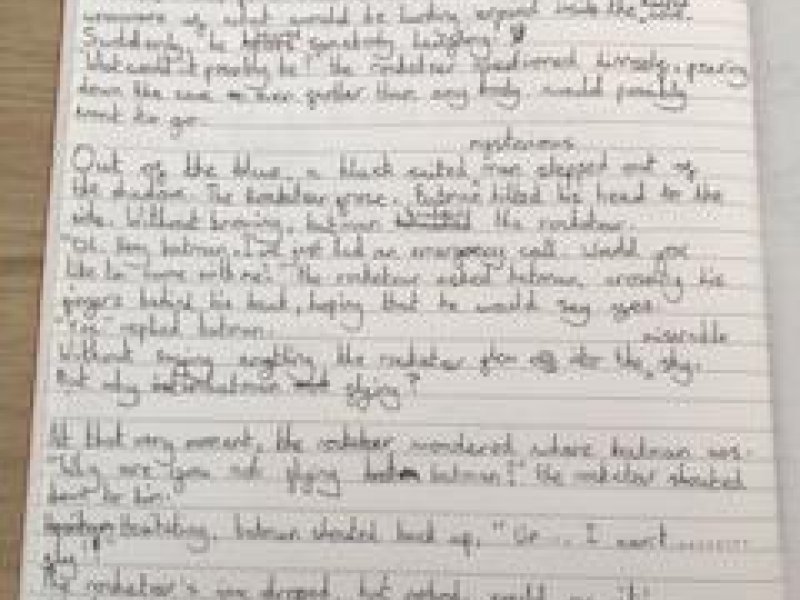 of what would be lurking around inside the
Suddenly, he somebody laughing!
What could it possibly be? the rocketeer questioned himself, peering
down the cave even further than any body would possibly
want to go.
mysterious
Out of the blue, a black suited man stepped out of
the shadow. The Rocketeer froze. Batman tilted his head to the
side. Without knowing, batman the rocketeer.
"Oh, hey batman, I've just had an emergency call. Would you
like to come with me?" The rocketeer asked batman, crossing his
fingers behind his back, hoping that he would say yes.
"Yes" replied batman.
miserable
Without saying anything, the rocketeer flew off into the sky.
But why batman flying?
At that very moment, the rocketeer wondered where batman was.
"Why are you not flying batman?" the rocketeer shouted
down to him.
Hesitating, batman shouted back up, "Um... I can't.........
fly"!
The rocketeer's jaw dropped, but nobody could see it!